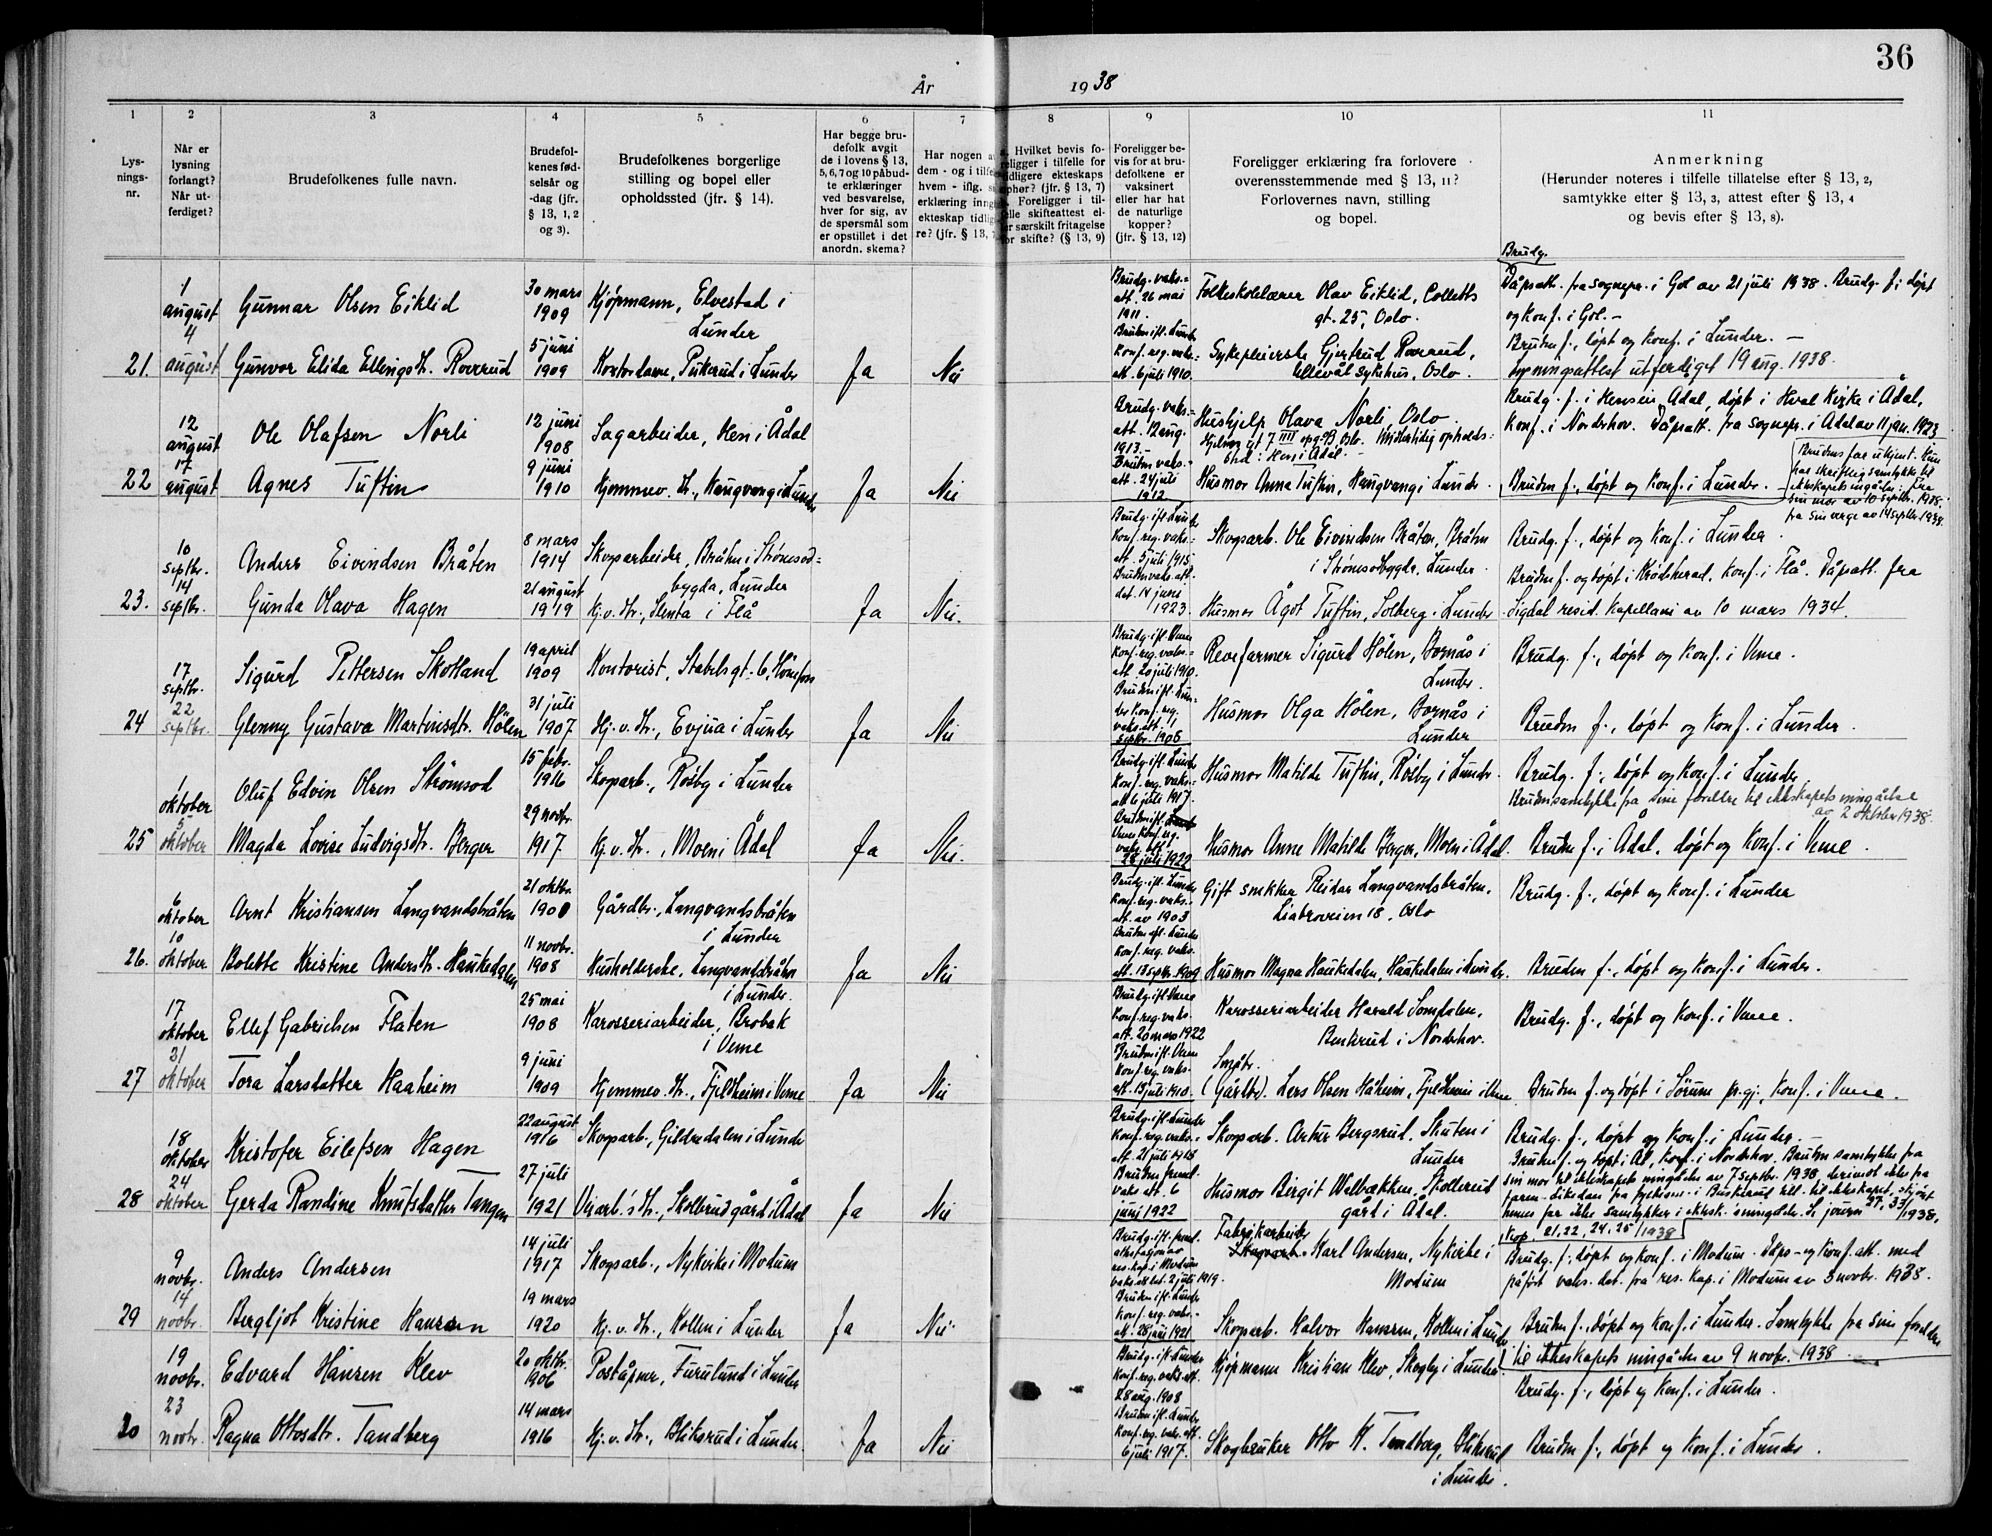 36
År 1938
1 2 3 4 5 6 7 8 9 10 11
Lys-
nings-
nr.
Når er
lysning
forlangt?
Når ut-
ferdiget?
Brudefolkenes fulle navn.
Brudefol-
kenes fød-
selsår og
-dag (jfr.
§ 13, 1, 2
og 3).
Brudefolkenes borgerlige
stilling og bopel eller
opholdssted (jfr. § 14).
Har begge bru-
defolk avgit
de i lovens § 13,
5, 6, 7 og 10 påbud-
te erklæringer
ved besvarelse,
hver for sig, av
de spørsmål som
er opstillet i det
anordn. skema?
Har nogen a
dem - og i tilfe
hvem - iflg.
erklæring inng
ekteskap tidlig
re? (jfr. § 13,
Hvilket bevis fo-
religger i tilfelle for
tidligere ekteskaps
ophør? (jfr. § 13, 7)
Foreligger i til-
elle skifteattest el-
er særskilt fritagelse
or skifte? (§ 13, 9)
Foreligger be-
vis for at bru-
defolkene er
vaksinert
eller har hat
de naturlige
kopper?
(jfr. § 13, 12)
Foreligger erklæring fra forlovere
overensstemmende med § 13, 11?
Forlovernes navn, stilling
og bopel.
Anmerkning
(Herunder noteres i tilfelle tillatelse efter § 13, 2,
samtykke efter § 13, 3, attest efter § 13, 4
og bevis efter § 13, 8).
1 august Gunnar Olsen Eiklid 30 mars 1909 Kjøpmann, Elvestad i Lunder
Brudg. vaks.= att. 26 mai 1911.
Folkeskolelærer Olav Eiklid, Colletts gt. 25, Oslo.
Brudg. Dåpsatt. fra sognepr. i Gol av 21 juli 1938. Brudg. f., døpt
og konf. i Gol. -
21. 4 august Gunvor Elida Ellingsdtr. Roverud 5 juni 1909 Kontordame, Pukerud i Lunder Ja Nei
Bruden ifl. Lunder konf. reg. vaks.= att. 6 juli 1910.
Sykepleierske Gjertrud Roverud, Ullevål sykehus, Oslo.
Bruden f., døpt og konf. i Lunder. -
Lysningsattest utferdiget 19 aug. 1938.
12 august Ole Olafsen Norli 12 juni 1908 Sagarbeider, Hen i Ådal
Brudg. vaks.- att. 12 aug. 1913.
Hushjelp Olava Norli Oslo
Brudg. f. i Hensein Ådal, døpt i Hval Kirke i Ådal,
konf. i Norderhov. Dåpsatt. fra sognepr. i Ådal av 11 jan. 1923
22 17 august Agnes Tuftin 9 juni 1910 Hjemmev. dtr., Haugvang i Lunder Ja Nei
Bruden vaks.- att. 24 juli 1912
Husmor Anna Tuftin, Haugvang i Lunder.
Bruden f., døpt og konf. i Lunder. -
Brudens far ukjent. Hun
har skriftlig samtykke til
ekteskapets inngåelse: fra
sin mor av 10 septbr. 1938.
fra sin verge av 14 septbr. 1938.
10 septbr. Anders Eivindsen Bråten 8 mars 1914 Skogsarbeider, Bråten i Strømsod= bygda, Lunder
Brudg. ifl. Lunder konf. reg. vaks.- att. 5 juli 1915.
Skogsarb. Ole Eivindsen Bråten, Bråten i Strømsodbygda, Lunder.
Brudg. f., døpt og konf. i Lunder.
23. 14 septbr. Gunda Olava Hagen 21 august 1919 Hj. v. dtr., Slenta i Flå Ja Nei.
Bruden vaks. att. dat. 14 juni 1923.
Husmor Ågot Tuftin, Solberg i Lunder
Bruden f. og døpt i Krødsherad, konf. i Flå. Dåpsatt. fra
Sigdal resid. kapellani av 10 mars 1934.
17 septbr. Sigurd Pettersen Skolland 19 april 1909 Kontorist, Stabelsgt. 6, Hönefoss
Brudg. ifl. Veme konf. reg. vaks.- att. 20 juli 1910.
Revefarmer Sigurd Hölen, Bornås i Lunder.
Brudg. f., døpt og konf. i Veme.
24 22 septbr. Glenny Gustava Martinsdtr. Hölen 31 juli 1907 Hj. v. dtr., Evjua i Lunder Ja Nei
Bruden ifl. Lunder konf. reg. vaks. att. 11 septbr. 1908
Husmor Olga Hölen, Bornås i Lunder
Bruden f., døpt og konf. i Lunder.
1 oktober Oluf Edvin Olsen Strömsod 15 febr. 1916 Skogsarb., Rösby i Lunder
Brudg. ifl. Lunder konf. reg. vaks.- att. 6 juli 1917.
Husmor Matilde Tuftin, Rösby i Lunder.
Brudg. f., døpt og konf. i Lunder
Bruden samtykke fra sine foreldre til ekteskapets inngåelse
av 2 oktober 1938.
25 5 oktober Magda Lovise Ludvigsdtr. Berger 29 novbr. 1917 Hj. v. dtr., Moen i Ådal Ja Nei.
Bruden ifl. Veme konf. reg. vaks. att. 28 juli 1922
Husmor Anne Matilde Berger, Moen i Ådal.
Bruden f. i Ådal, døpt og konf. i Veme.
6 oktober Arnt Kristiansen Langvandsbråten 21 oktbr. 1900 Gårdbr., Langvandsbråten i Lunder
Brudg. ifl. Lunder konf. reg. vaks.- att. av 1903
Gift snekker Reidar Langvandsbråten, Liabroveien 18, Oslo
Brudg. f., døpt og konf. i Lunder
26. 10 oktober Bolette Kristine Andersdtr. Haukedalen 11 novbr. 1908 Husholderske, Langvandsbråten i Lunder. Ja Nei
Bruden ifl. Lunder konf. reg. vaks. att. 13 septbr. 1909
Husmor Magna Haukedalen, Haukedalen i Lunder.
Bruden f., døpt og konf. i Lunder.
17 oktober Ellef Gabrielsen Flaten 25 mai 1908 Karosseriarbeider, Brobak i Veme
Brudg. ifl. Veme konf. reg. vaks. att. 20 mars 1922
Karosseriarbeider Harald Somdalen, Benterud i Norderhov.
Brudg. f., døpt og konf. i Veme.
27 21 oktober Tora Larsdatter Haaheim 9 juni 1909 Hjemmev. dtr., Fjeldheim i Veme Ja Nei
Bruden ifl. Veme konf. reg. vaks.- att. 13 juli 1910.
Småbr. (Gårdbr.) Lars Olsen Håheim, Fjeldheim i Veme
Bruden f. og døpt i Sörum pr.gj., konf. i Veme.
18 oktober Kristofer Eilefsen Hagen 22 august 1916 Skogsarb., Gildredalen i Lunder
Brudg. ifl. Lunder konf. reg. vaks.- att. 21 juli 1918
Skogsarb. Artur Bergsrud, Skuten i Lunder
Brudg. f., døpt og konf. i Lunder. -
Bruden f. og døpt i Ål, konf. i Norderhov. Bruden samtykke fra
sin mor til ekteskapets inngåelse av 7 septbr. 1938, derimot ikke fra
28 24 oktober Gerda Randine Knutsdatter Tangen 27 juli 1921 Veiarb.'s dtr., Skollerud gård i Ådal Ja Nei
Bruden freml. vaks. att. 6 juni 1922
Husmor Birgit Velbækken, Skollerud gård i Ådal.
Kop. 21, 22, 24, 25/1938
9 novbr. Anders Andersen 14 juli 1917 Skogsarb., Nykirke i Modum
Fabrikarbeider Karl Andersen, Nykirke i Modum
Brudg. f., døpt og konf. i Modum. Dåps- og konf. att. med
påført vaks. dat. fra res. kap. i Modum av 3 novbr. 1938.
29 14 novbr. Bergljot Kristine Hansen 19 mars 1920 Hj. v. dtr., Kollen i Lunder Ja Nei
Bruden ifl. Lunder konf. reg. vaks.- att. 28 juni 1921
Skogsarb. Halvor Hansen, Kollen i Lunder
Bruden f., døpt og konf. i Lunder. Samtykke fra sine foreldre
til ekteskapets inngåelse av 9 novbr. 1938.
19 novbr. Edvard Hansen Klev 20 oktbr. 1906 Poståpner, Furulund i Lunder
Brudg. ifl. Lunder konf. reg. vaks. att. 28 aug. 1908
Kjøpmann Kristian Klev, Skogly i Lunder.
Brudg. f., døpt og konf. i Lunder.
30 23 novbr. Ragna Ottosdtr. Tandberg 14 mars 1916 Hj. v. dtr., Bliksrud i Lunder. Ja Nei
Bruden ifl. Lunder konf. reg. vaks. att. 6 juli 1917.
Skogbruker Otto H. Tandberg, Bliksrud i Lunder.
Bruden f., døpt og konf. i Lunder.